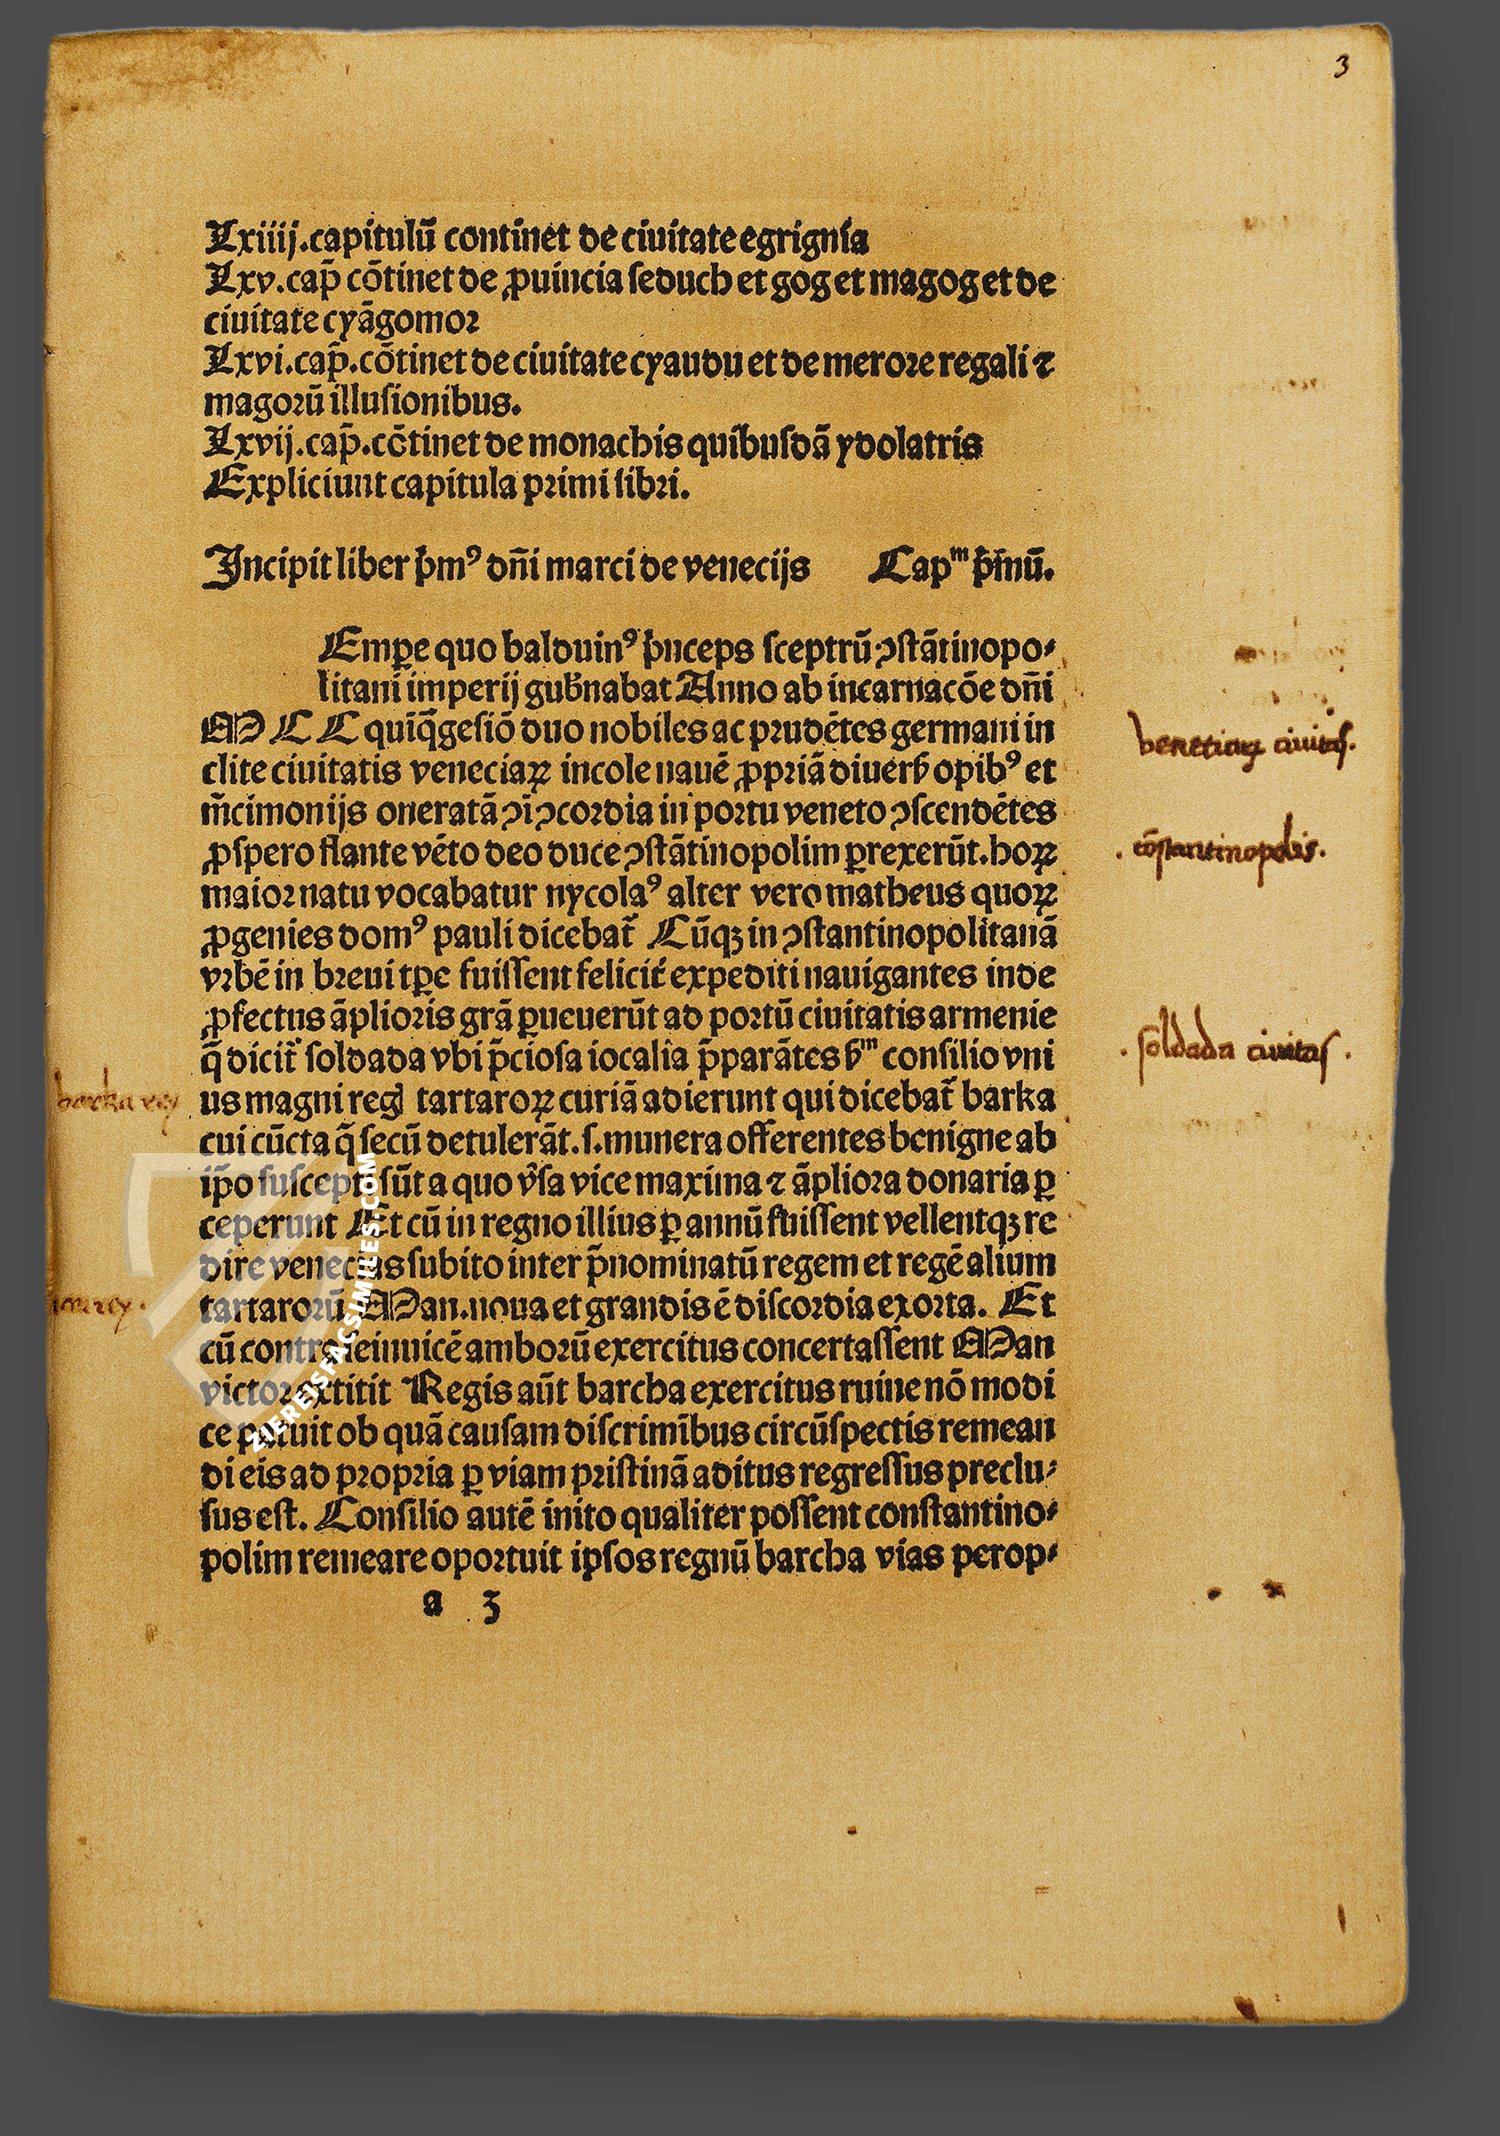 3
Lxiiij.capitulū continet de ciuitate egrignia
Lxv.cap̄ cōtinet de ꝓuincia ſeduch et gog et magog et de
ciuitate cyāgomoꝛ
Lxvi.cap̄.cōtinet de ciuitate cyaudu et de meroꝛe regali ⁊
magoꝛū illuſionibus.
Lxvij.cap̄.cōtinet de monachis quibuſdā ydolatris
Expliciunt capitula pꝛimi libꝛi.
Incipit liber p̓mꝰ dn̄i marci de venecijs Capᵐ p̓mū.
Empꝑe quo balduinꝰ p̓nceps ſceptrū ꝯſtātinopo⸗
litani imperij gub̓nabat Anno ab incarnacōe dn̄i
M C C quīq̄geſiō duo nobiles ac pꝛudētes germani in
clite ciuitatis veneciaꝝ incole nauē ꝓpꝛiā diuerſ opibꝰ et
m̄cimonijs oneratā ꝯī ꝯcoꝛdia in poꝛtu veneto ꝯſcendētes
ꝓſpero flante vēto deo duce ꝯſtātinopolim ꝑrexerūt.hoꝝ
maioꝛ natu vocabatur nycolaꝰ alter vero matheus quoꝝ
ꝓgenies domꝰ pauli dicebat᷑ Cūqꝫ in ꝯſtantinopolitanā
vꝛbē in bꝛeui tꝑe fuiſſent felicit᷑ expediti nauigantes inde
ꝓfectus āplioꝛis grā ꝑueuerūt ad poꝛtū ciuitatis armenie
q̄ dicit᷑ ſoldada vbi p̄cioſa iocalia p̄parātes ẜᵐ conſilio vni
us magni regꝭ tartaroꝝ curiā adierunt qui dicebat᷑ barka
cui cūcta q̄ ſecū detulerāt.ſ.munera offerentes benigne ab
ip̄o ſuſcepti ſūt a quo v̓ſa vice maxima ⁊ āplioꝛa donaria ꝑ
ceperunt Et cū in regno illius ꝑ annū fuiſſent vellentqꝫ re
dire venecias ſubito inter p̄nominatū regem et regē alium
tartaroꝛū Man.noua et grandis ē diſcoꝛdia exoꝛta. Et
cū contra ſeinuicē amboꝛū exercitus concertaſſent Man
victoꝛ extitit Regis aūt barcha exercitus ruine nō modi
ce patuit ob quā cauſam diſcrimībus circūſpectis remean
di eis ad pꝛopꝛia ꝑ viam pꝛiſtinā aditus regreſſus preclu⸗
ſus eſt. Conſilio autē inito qualiter poſſent conſtantino⸗
polim remeare opoꝛtuit ipſos regnū barcha vias perop⸗
a 3
benetiaꝝ ciuitaſ.
. cōſtantinopolis.
. ſoldada ciuitaſ .
barka rey
ZIEREISFACSIMILES.COM